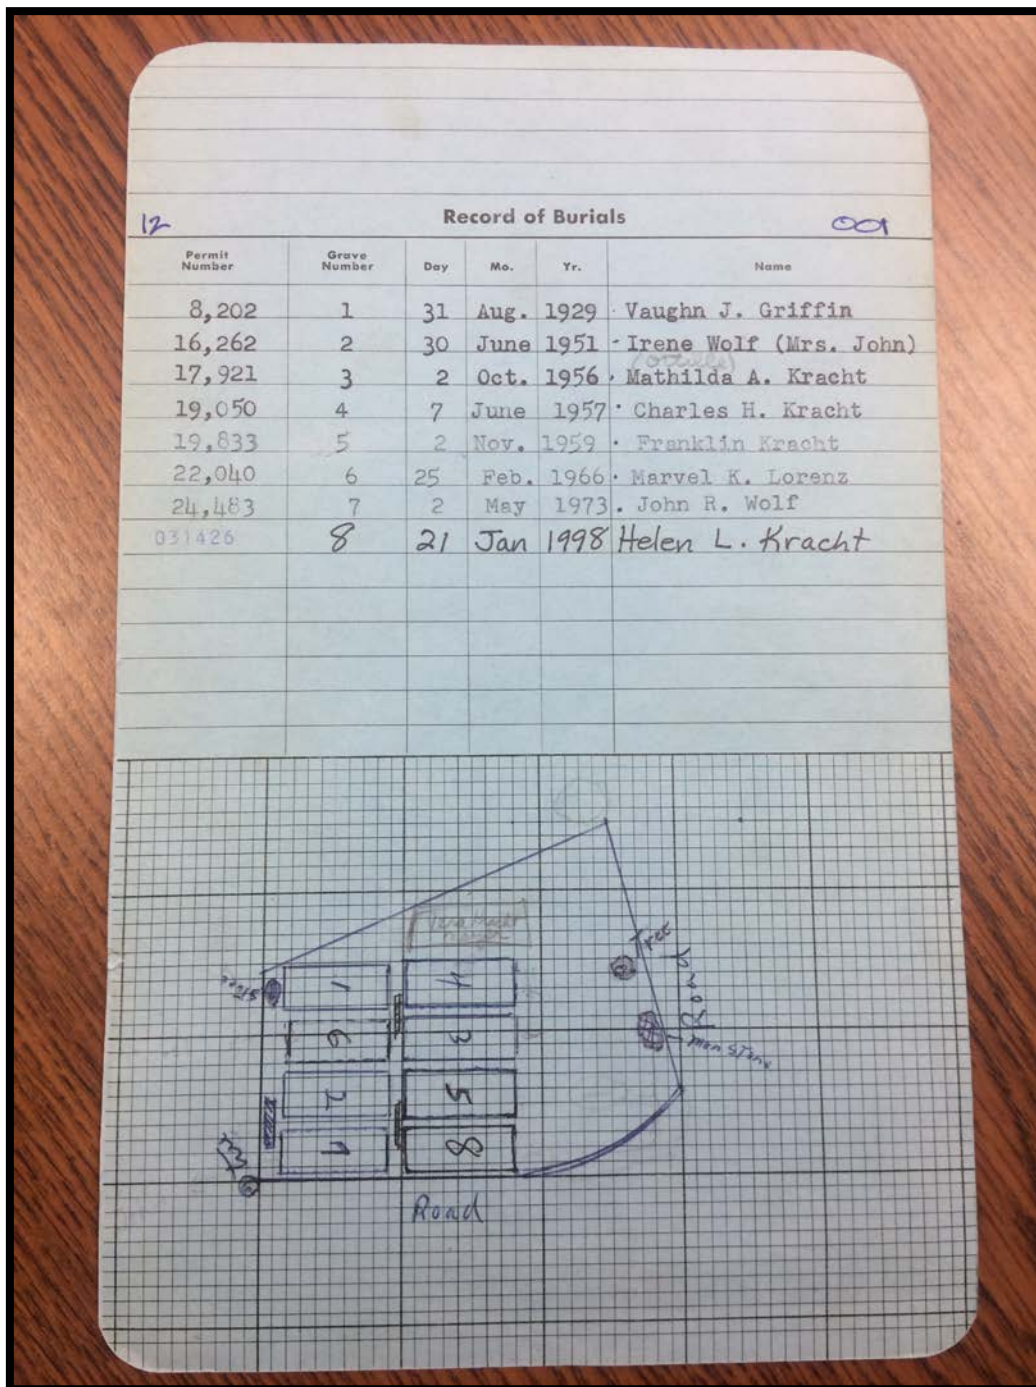 12 Record of Burials 001
Permit Number Grave Number Day Mo. Yr. Name
8,202 1 31 Aug. 1929 Vaughn J. Griffin
16,262 2 30 June 1951 - Irene Wolf (Mrs. John)
17,921 3 2 Oct. 1956 Mathilda A. Kracht
19,050 4 7 June 1957 Charles H. Kracht
19,833 5 2 Nov. 1959 Franklin Kracht
22,040 6 25 Feb. 1966 Marvel K. Lorenz
24,483 7 2 May 1973. John R. Wolf
031426 8 21 Jan 1998 Helen L. Kracht
Tree
1 4
Road
6 3
2 5
8
Road